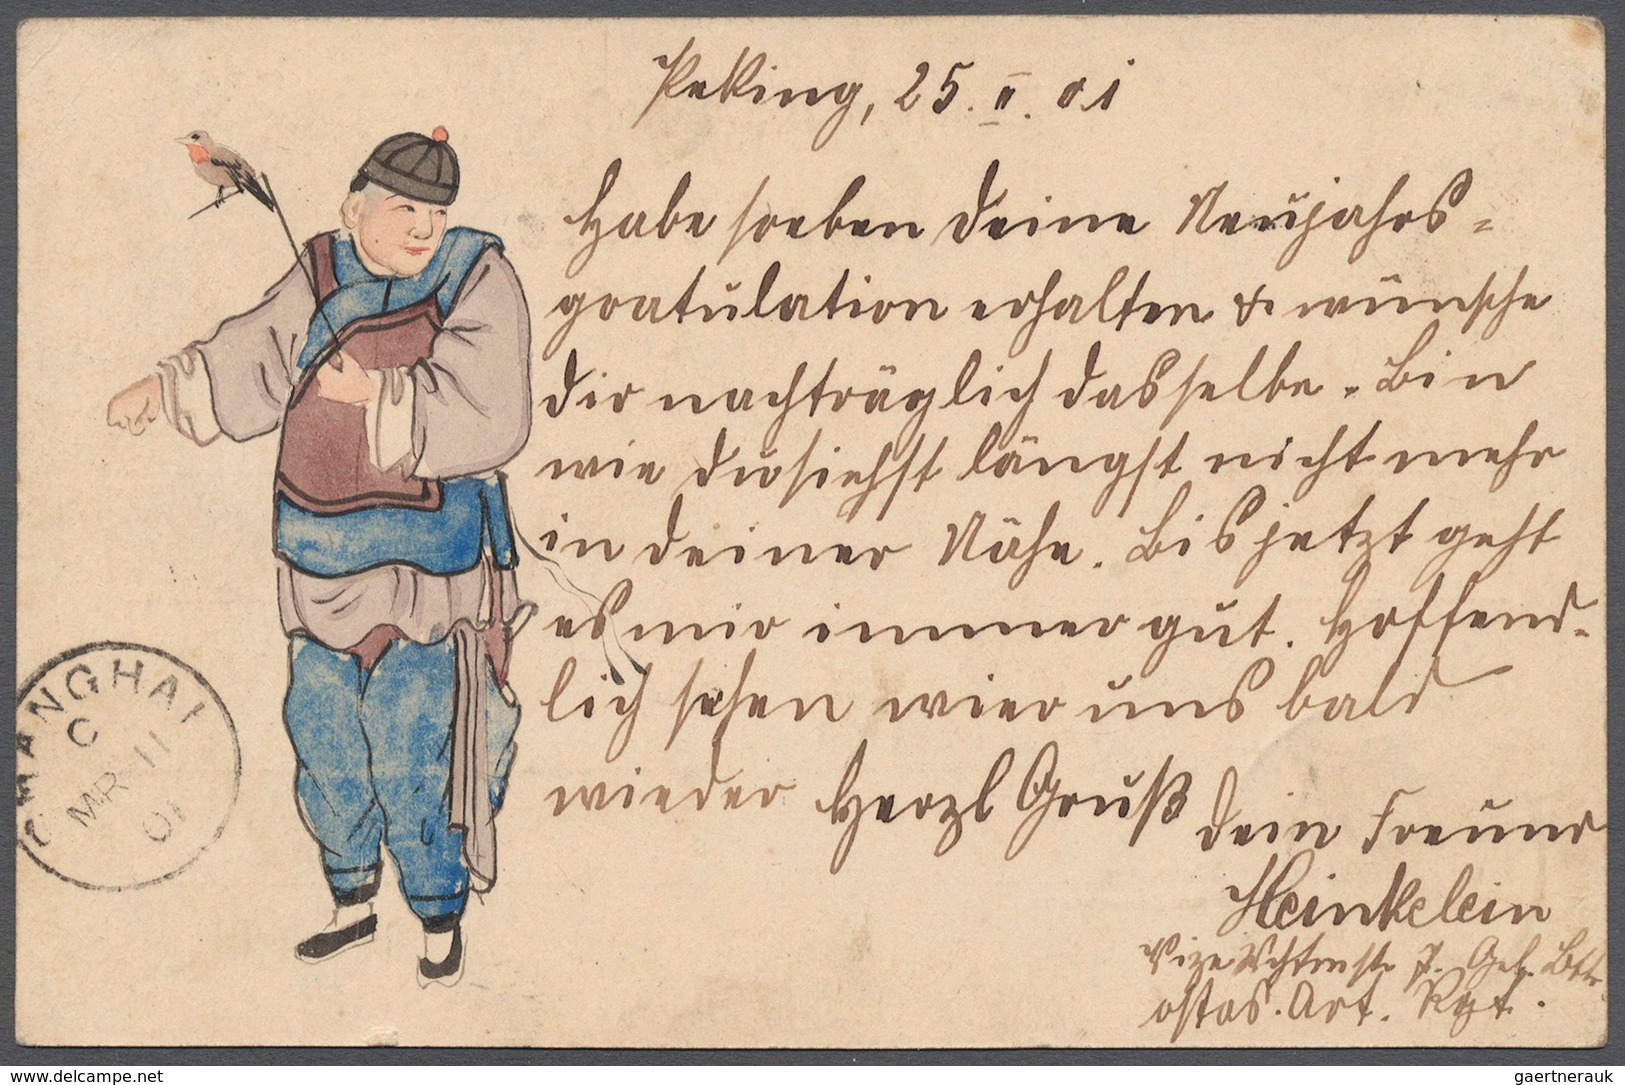 Peking, 25. II. 01
Habe soeben deine Neujahrs=
gratulation erhalten & wünsche
dir nachträglich dasselbe. Bin
wie du siehst längst nicht mehr
in deiner Nähe. Bis jetzt geht
es mir immer gut. Hoffend-
lich sehen wier uns bald
wieder Herzl Gruß
dein Freund
Heinkelein
Vize Wchtmstr 7. Geb. Bttr
ostas. Art. Rgt.
SHANGHAI
C
MR 11
01
www.delcampe.net
gaertnerauk